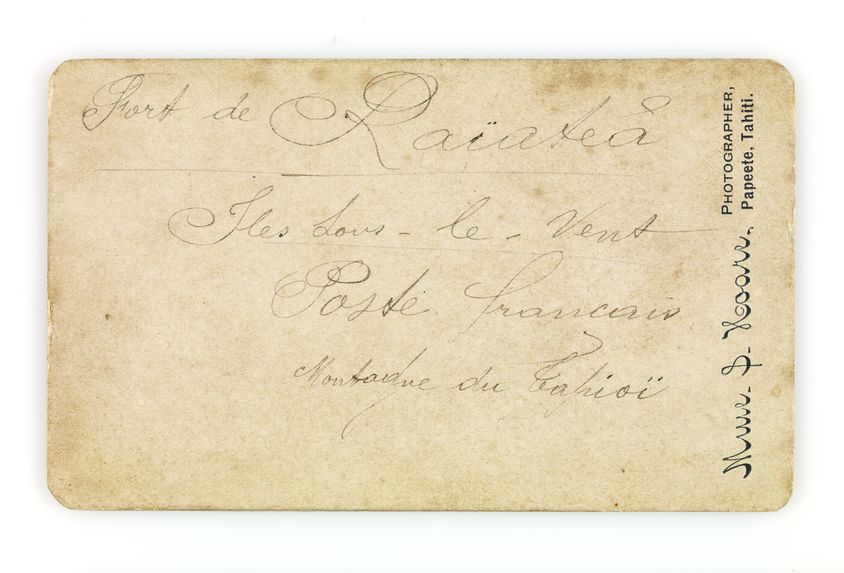 Port de Raïateâ
Iles Sous-le-Vent
Poste français
Montagne du Tapioï
Mme. S. Hoare,
PHOTOGRAPHER,
Papeete, Tahiti.